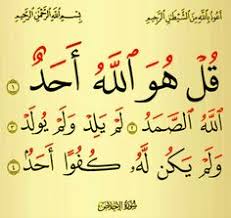 أعوذ بالله من الشيطن الرجيم بسم الله الرحمن الرحيم
قُلْ هُوَ ٱللَّهُ أَحَدٌ ١
ٱللَّهُ ٱلصَّمَدُ ٢ لَمْ يَلِدْ وَلَمْ يُولَدْ ٣
وَلَمْ يَكُن لَّهُۥ كُفُوًا أَحَدٌۢ ٤
سورة الإخلاص